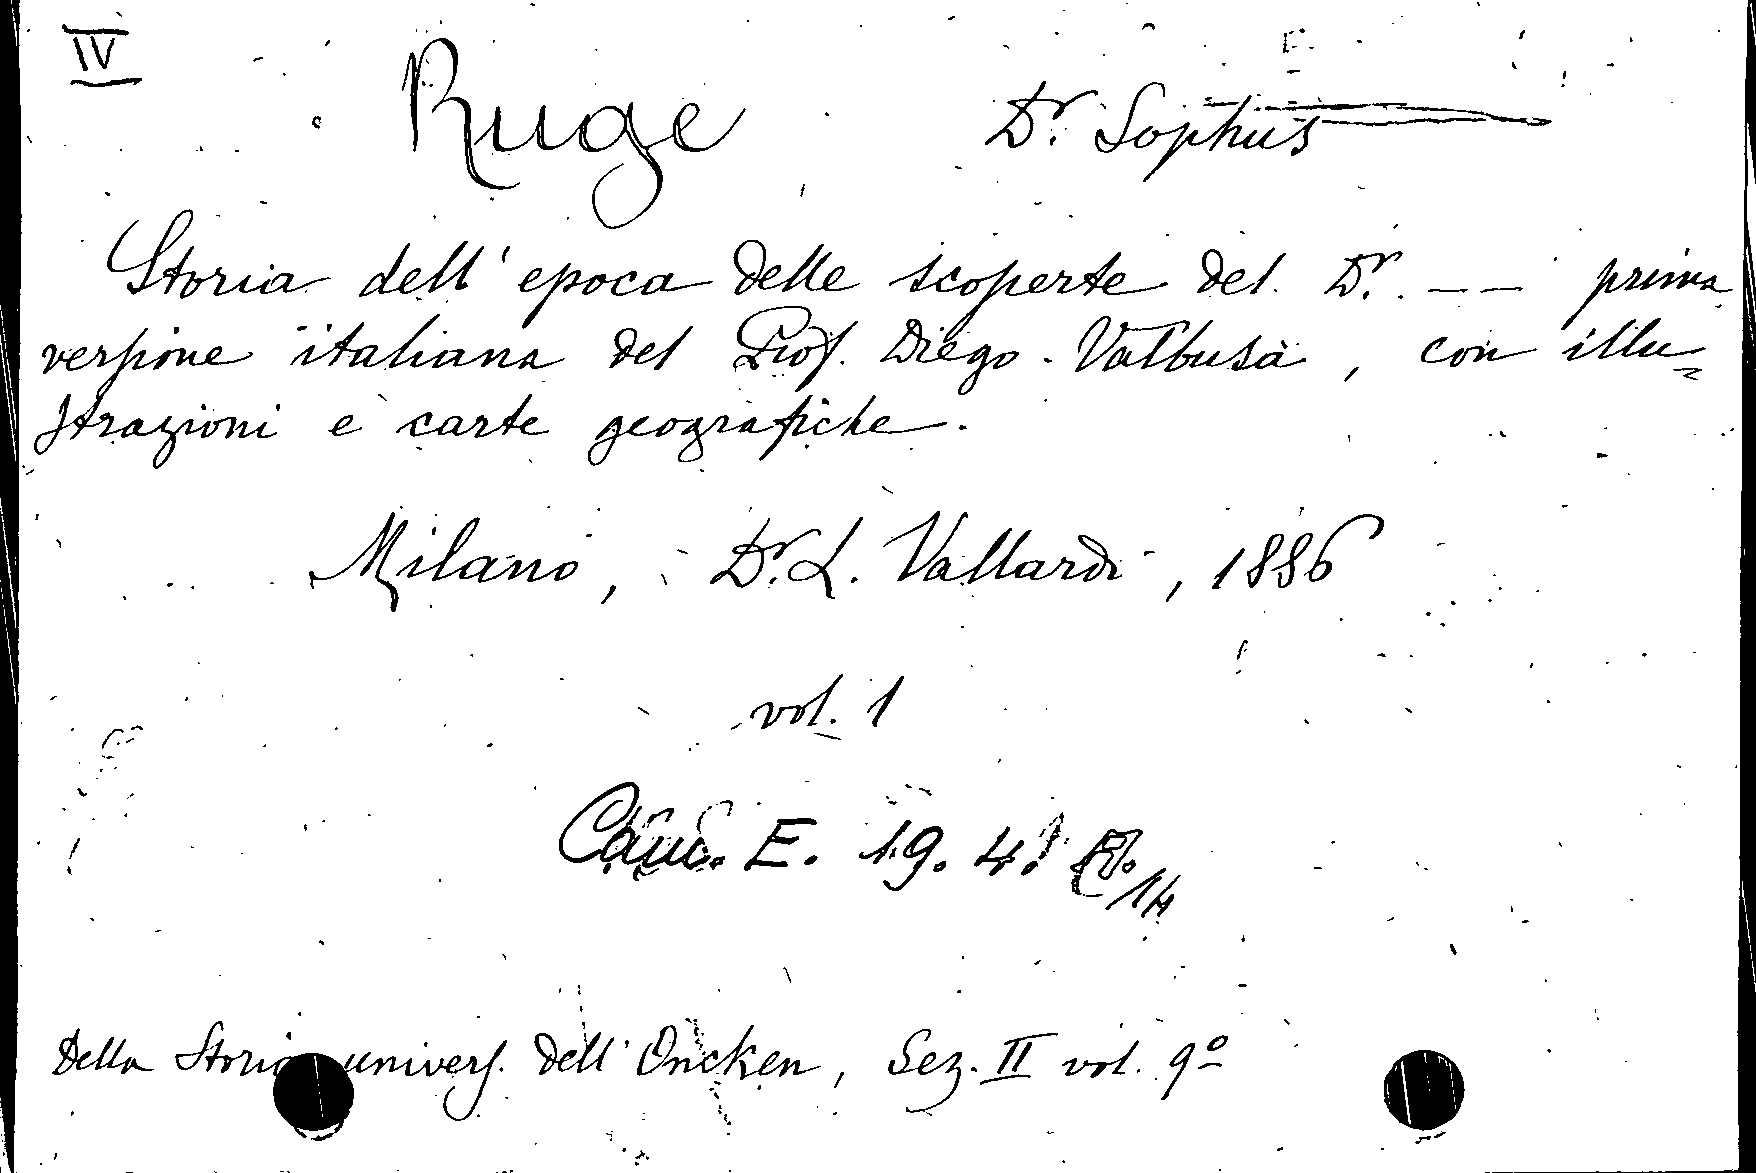 IV
Ruge Dr. Sophus
Storia dell'epoca delle scoperte del Dr. -- prima
versione italiana del Prof. Diego Valbusa, con illu=
strazioni e carte geografiche.
Milano, Dr. L. Vallardi, 1886
vol. 1
Cam. E. 19. 4.
Della Storia univers. dell'Oncken, Sez. II vol. 9º